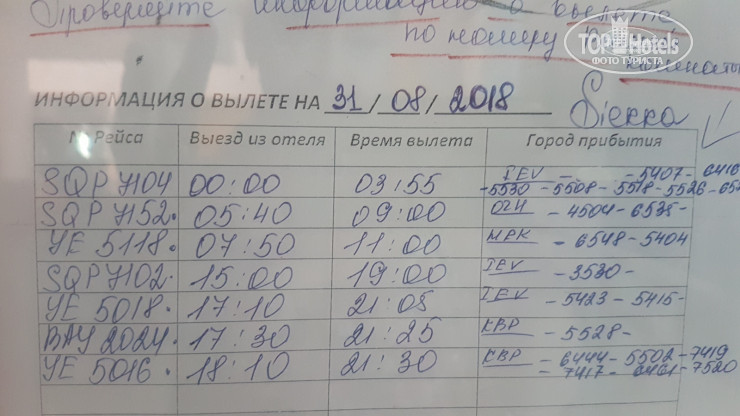 Проверяйте информацию о вылете
по номеру
комнаты
TOP Hotels
ФОТО ТУРИСТА
ИНФОРМАЦИЯ О ВЫЛЕТЕ НА 31/08/2018
Siекка
№ Рейса Выезд из отеля Время вылета Город прибытия
SQP 7104 00:00 03:55 IEV - -5407-6416
-5530-5508-5518-5526-65
SQP 7152. 05:40 09:00 OZH -4504-6535-
YE 5118. 07:50 11:00 HRK -6548-5404
SQP 7102. 15:00 19:00 IEV -3530-
YE 5018. 17:10 21:05 IEV -5423-5415-
BAY 2024. 17:30 21:25 KBP -5528-
YE 5016. 18:10 21:30 KBP -6444-5502-7419
-7417-6401-7520